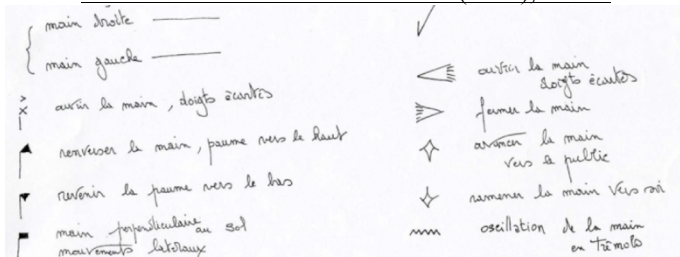 main droite
main gauche
ouvrir la main, doigts écartés
renverser la main, paume vers le haut
revenir la paume vers le bas
main perpendiculaire
au sol
mouvements latéraux
ouvrir la main
doigts écartés
fermer la main
avancer la main
vers le public
ramener la main vers soi
oscillation de la main
en trémolo